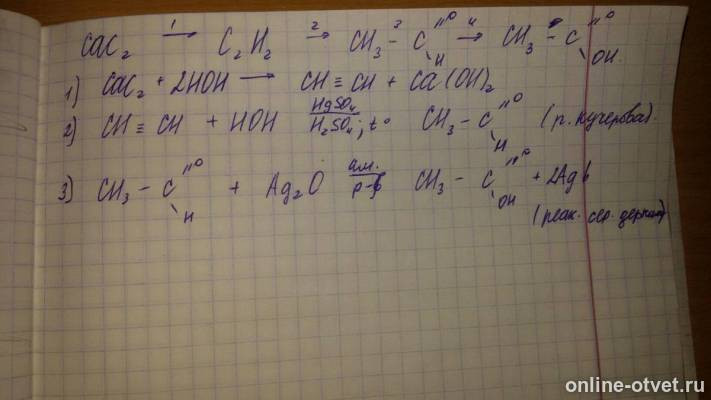 CaC₂ —1→ C₂H₂ —2→ CH₃–C(=O)H —3 4→ CH₃–C(=O)OH.
1) CaC₂ + 2HOH → CH≡CH + Ca(OH)₂
2) CH≡CH + HOH HgSO₄ / H₂SO₄; t° CH₃–C(=O)H (р. Кучерова).
3) CH₃–C(=O)H + Ag₂O ам. / р-р CH₃–C(=O)OH + 2Ag↓
(реак. сер. зеркала)
online-otvet.ru